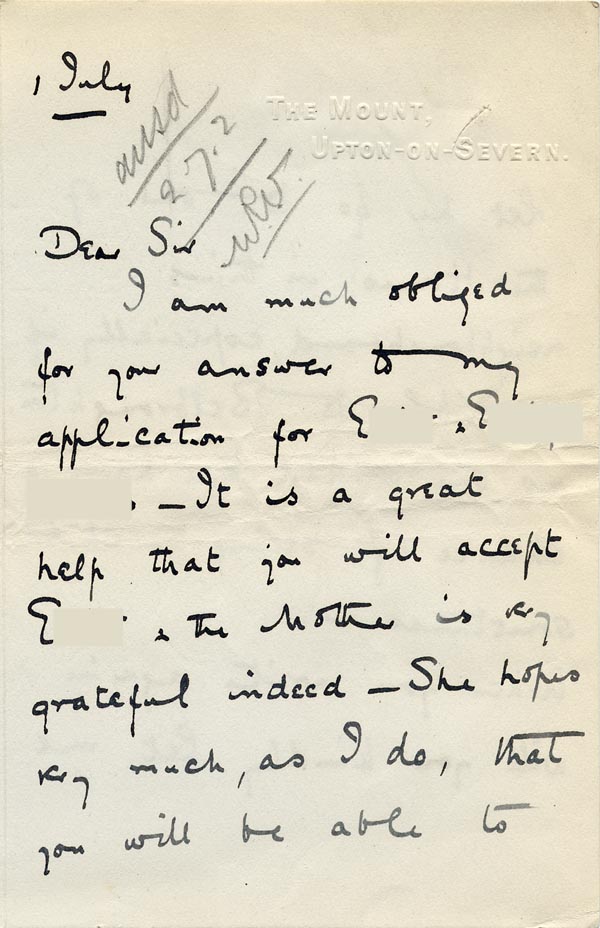 1 July
THE MOUNT,
UPTON-ON-SEVERN.
ansd
2.7.2
W.P.W.
Dear Sir
I am much obliged
for your answer to my
application for E & E ,
. – It is a great
help that you will accept
E & the Mother is very
grateful indeed – She hopes
very much, as I do, that
you will be able to